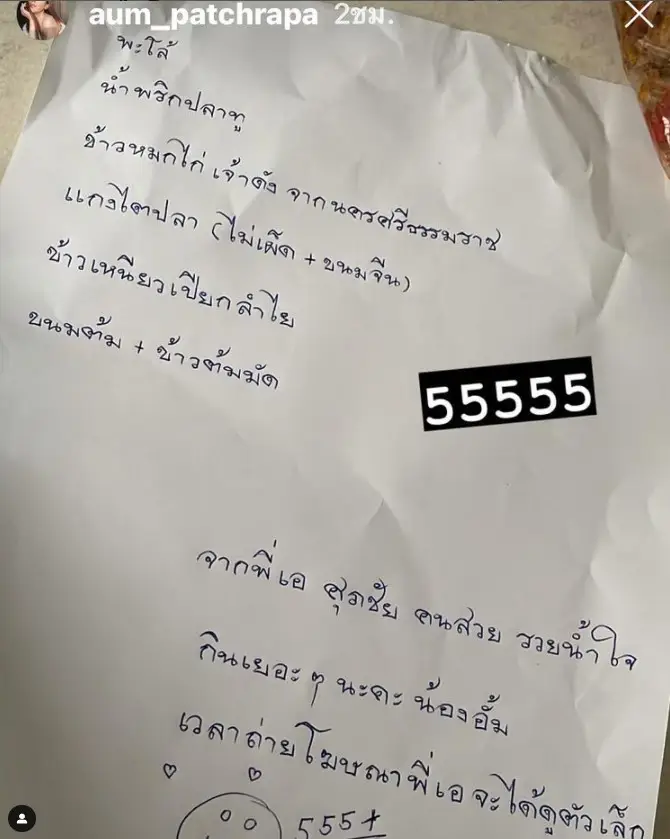 aum_patchrapa 2ชม.
พะโล้
น้ำพริกปลาทู
ข้าวหมกไก่ เจ้าดัง จากนครศรีธรรมราช
แกงไตปลา (ไม่เผ็ด + ขนมจีน)
ข้าวเหนียวเปียกลำไย
ขนมต้ม + ข้าวต้มมัด
55555
จากพี่เอ ศุภชัย คนสวย รวยน้ำใจ
กินเยอะๆ นะคะ น้องอั้ม
เวลาถ่ายโฆษณาพี่เอจะได้ดูตัวเล็ก
555+